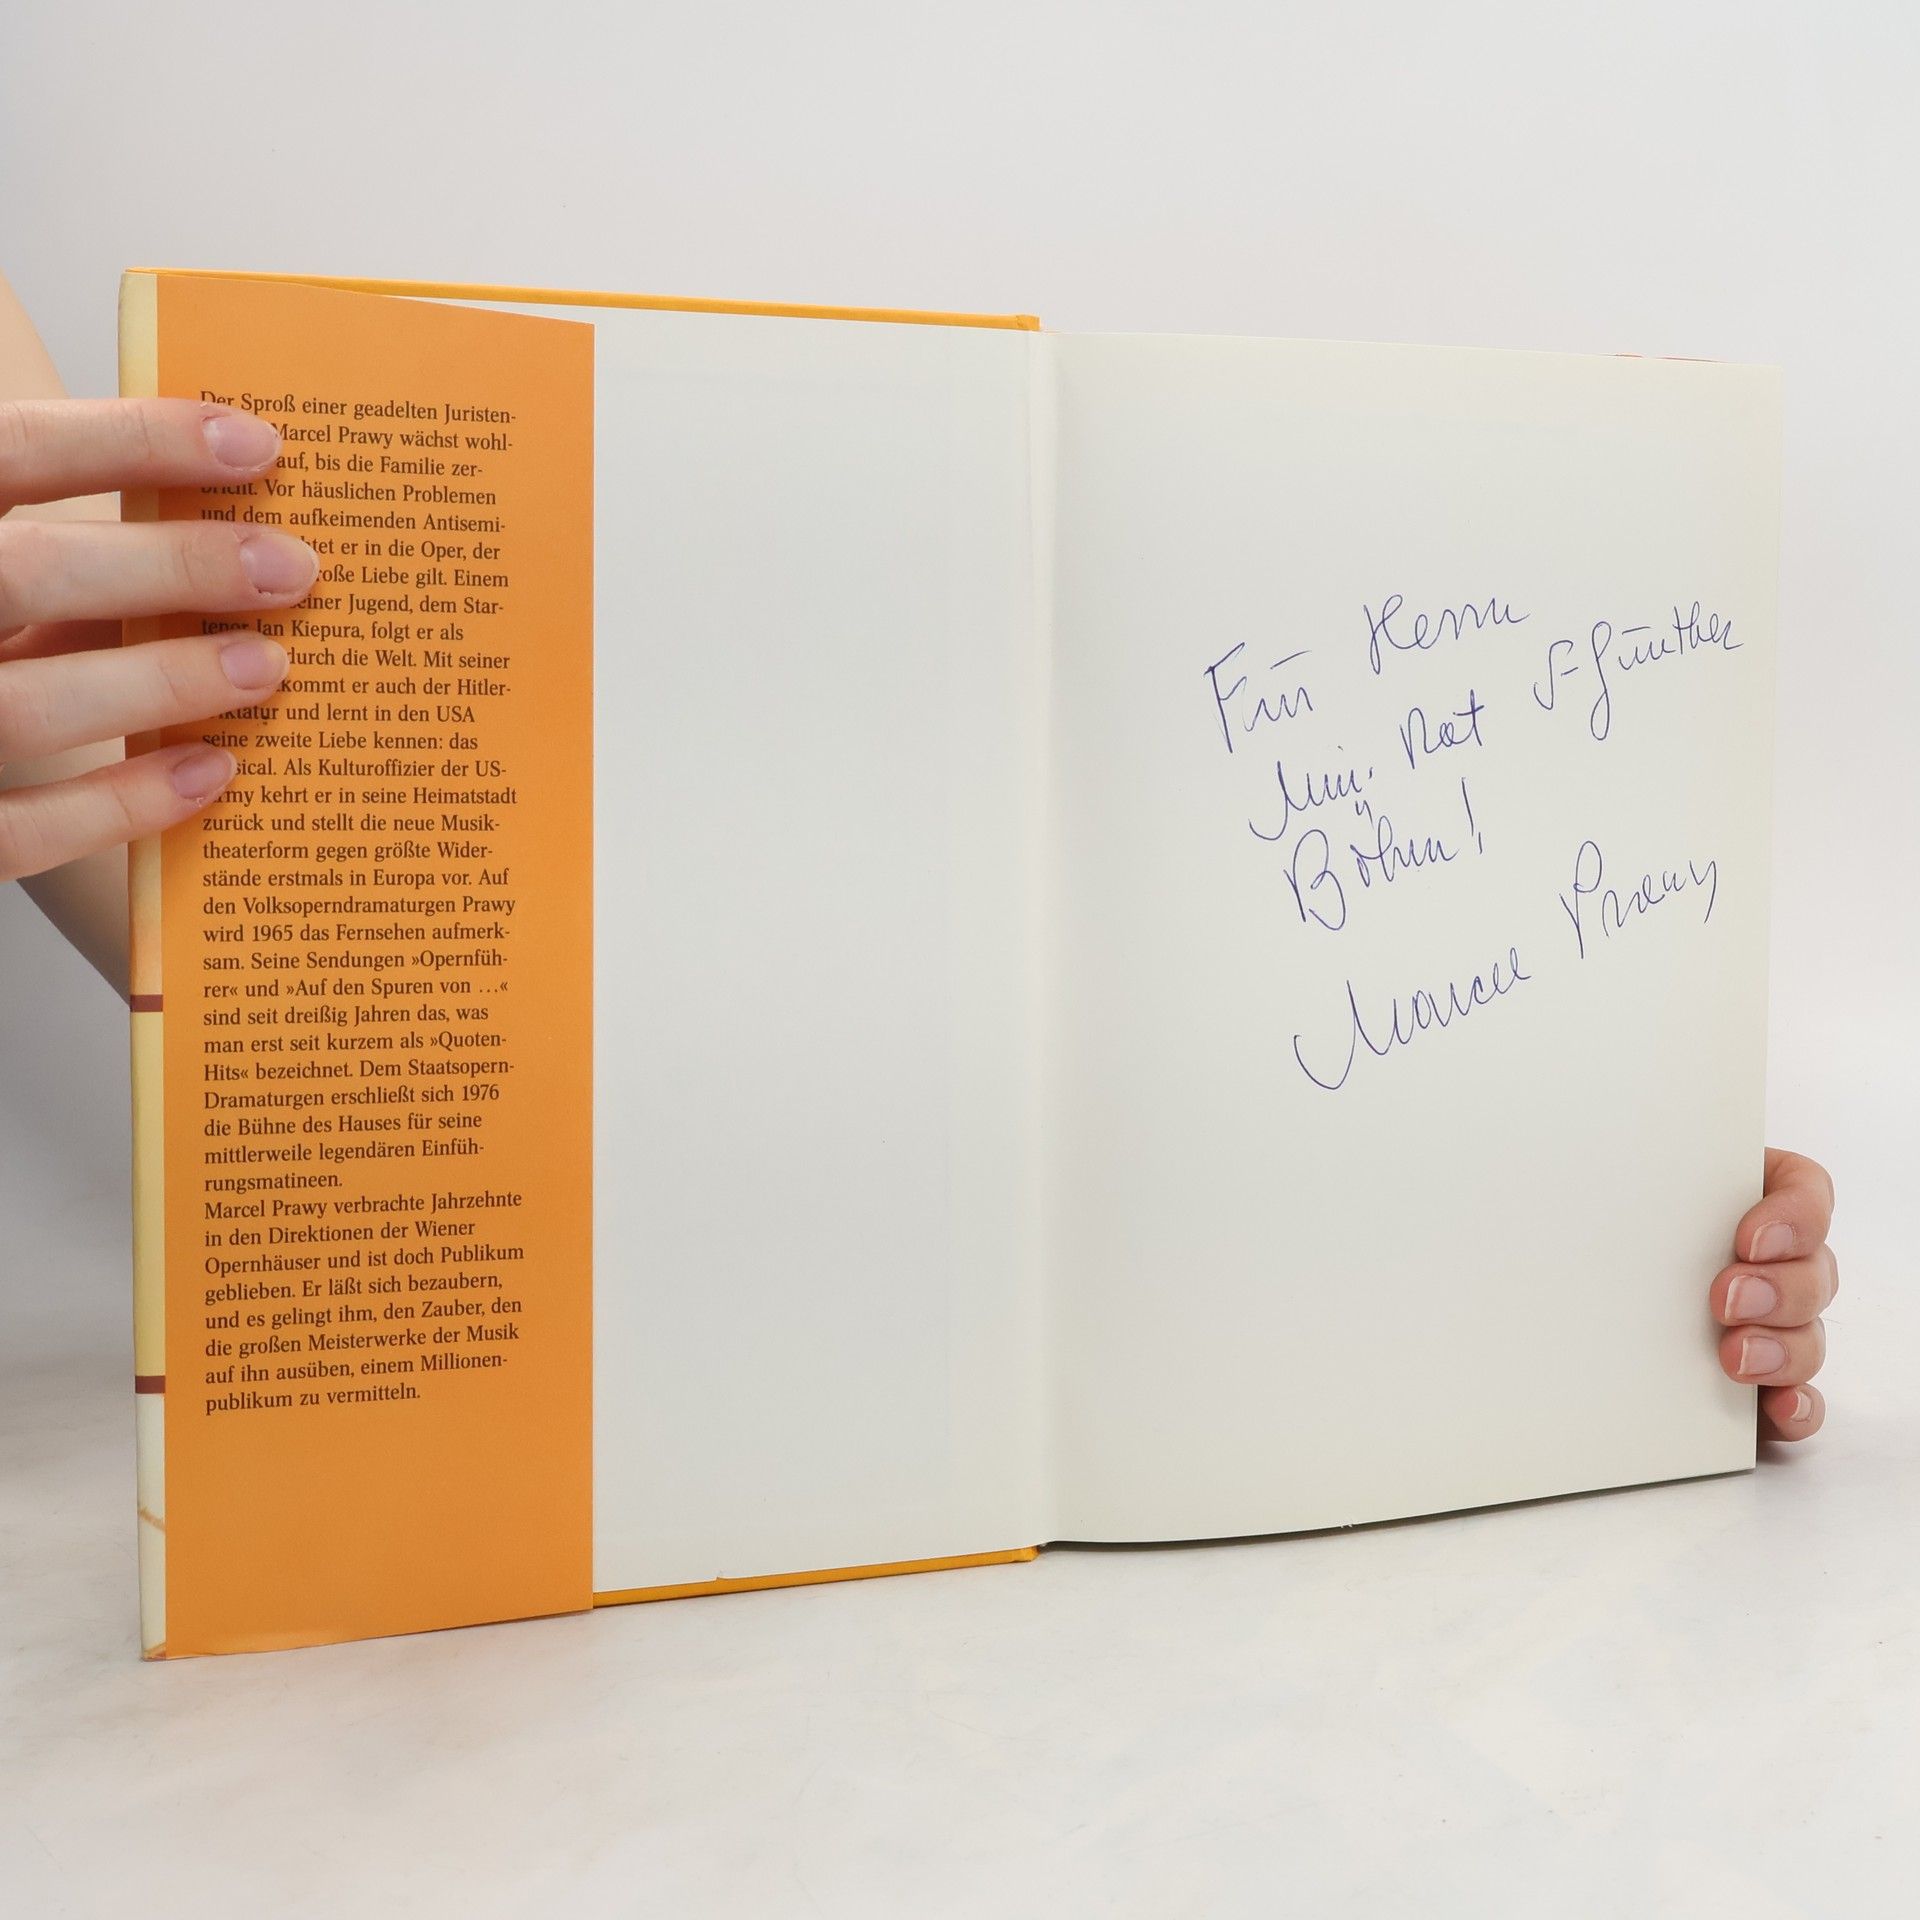 Der Sproß einer geadelten Juristen-
Marcel Prawy wächst wohl-
auf, bis die Familie zer-
bricht. Vor häuslichen Problemen
und dem aufkeimenden Antisemi-
er in die Oper, der
große Liebe gilt. Einem
seiner Jugend, dem Star-
tenor Jan Kiepura, folgt er als
durch die Welt. Mit seiner
kommt er auch der Hitler-
Diktatur und lernt in den USA
seine zweite Liebe kennen: das
Musical. Als Kulturoffizier der US-
Army kehrt er in seine Heimatstadt
zurück und stellt die neue Musik-
theaterform gegen größte Wider-
stände erstmals in Europa vor. Auf
den Volksoperndramaturgen Prawy
wird 1965 das Fernsehen aufmerk-
sam. Seine Sendungen »Opernfüh-
rer« und »Auf den Spuren von ...«
sind seit dreißig Jahren das, was
man erst seit kurzem als »Quoten-
Hits« bezeichnet. Dem Staatsopern-
Dramaturgen erschließt sich 1976
die Bühne des Hauses für seine
mittlerweile legendären Einfüh-
rungsmatineen.
Marcel Prawy verbrachte Jahrzehnte
in den Direktionen der Wiener
Opernhäuser und ist doch Publikum
geblieben. Er läßt sich bezaubern,
und es gelingt ihm, den Zauber, den
die großen Meisterwerke der Musik
auf ihn ausüben, einem Millionen-
publikum zu vermitteln.
Für Herrn
Min. Rat Günther
Böhm!
Marcel Prawy